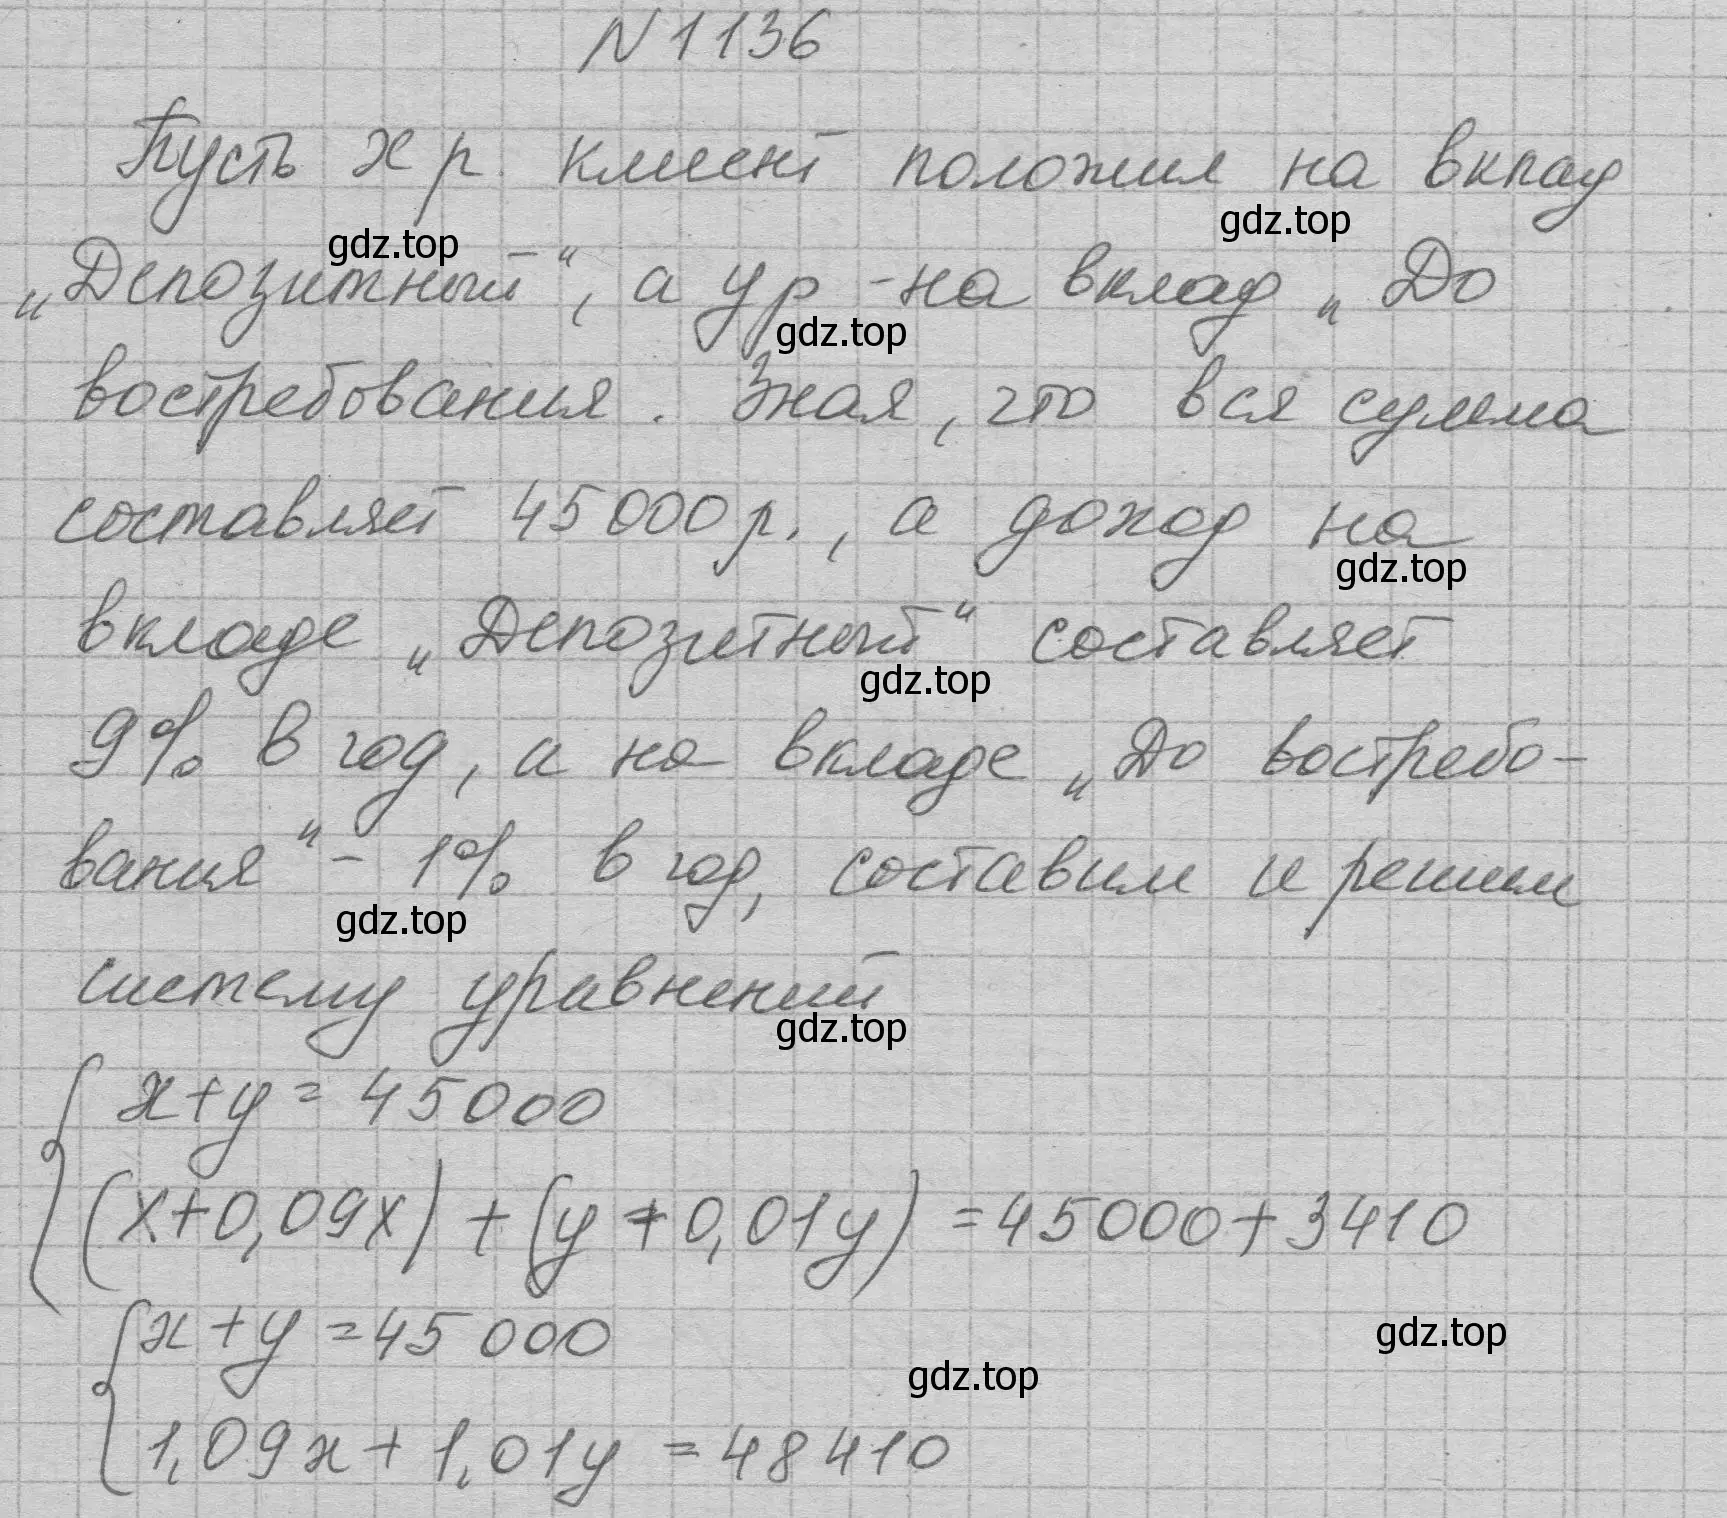 N 1136
Пусть x р. клиент положил на вклад
„Депозитный“, а y р - на вклад „До
востребования. Зная, что вся сумма
составляет 45000 р., а доход на
вкладе „Депозитный“ составляет
9% в год, а на вкладе „До востребо-
вания“ - 1% в год, составим и решим
систему уравнений
x+y=45000
(x+0,09x)+(y+0,01y)=45000+3410
x+y=45000
1,09x+1,01y=48410
gdz.top
gdz.top
gdz.top
gdz.top
gdz.top
gdz.top
gdz.top
gdz.top
gdz.top